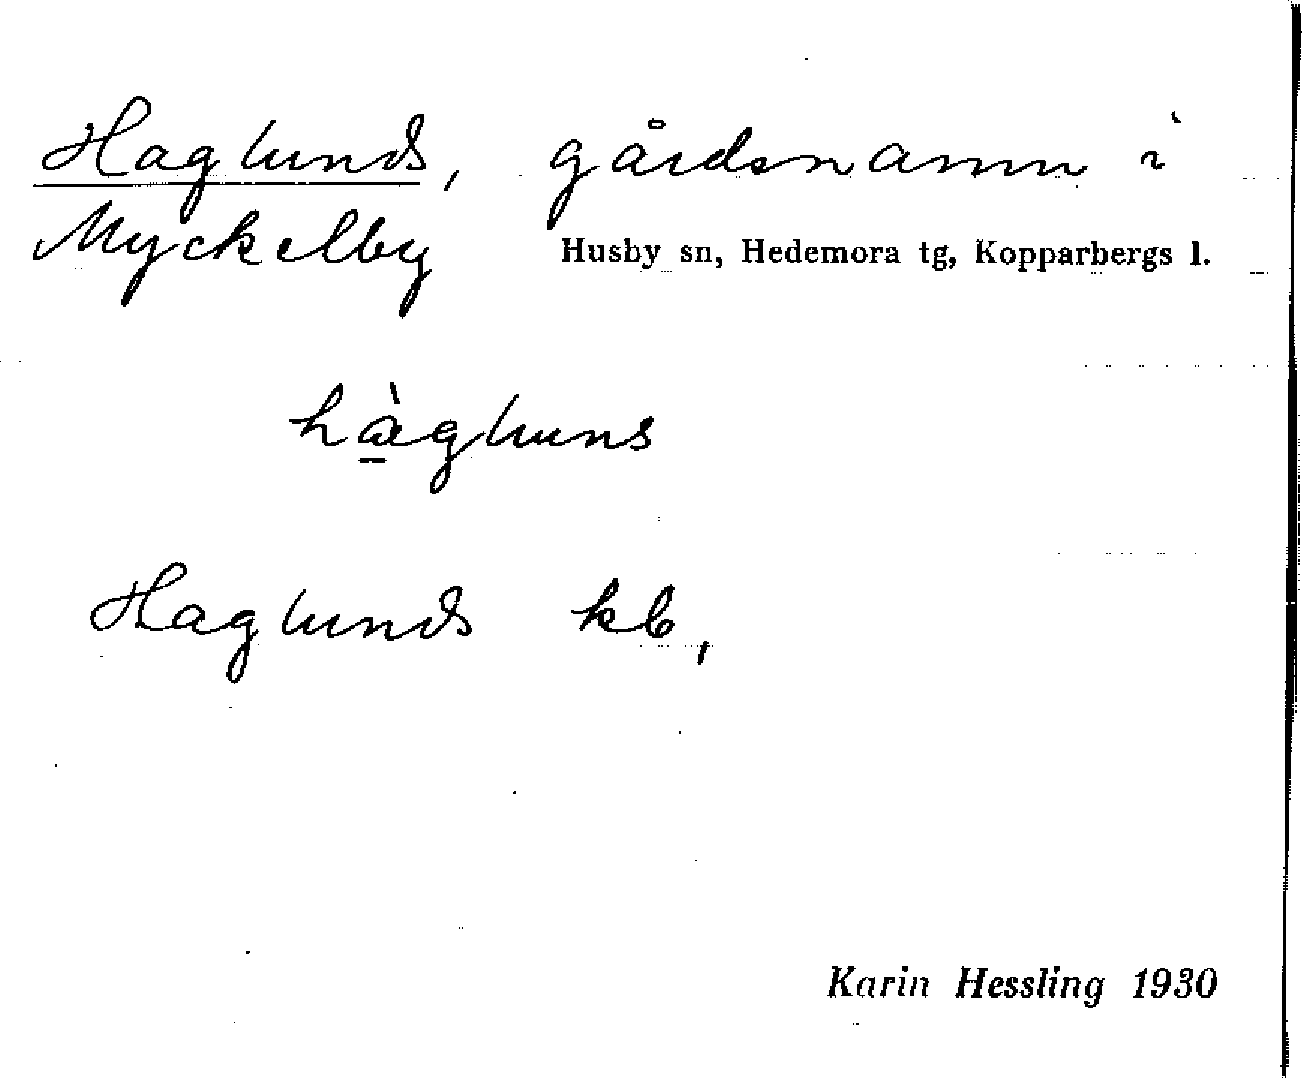 Haglunds, gårdsnamn i
Myckelby Husby sn, Hedemora tg, Kopparbergs l.
hà̠gluns
Haglunds kb,
Karin Hessling 1930